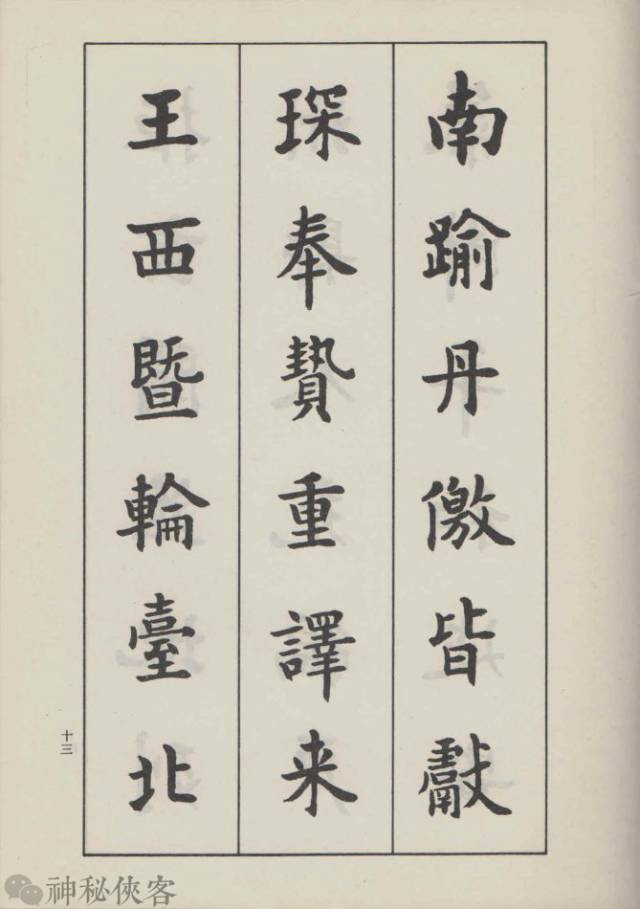 南踰丹徼皆獻
琛奉贄重譯来
王西暨輪臺北
十三
神秘俠客